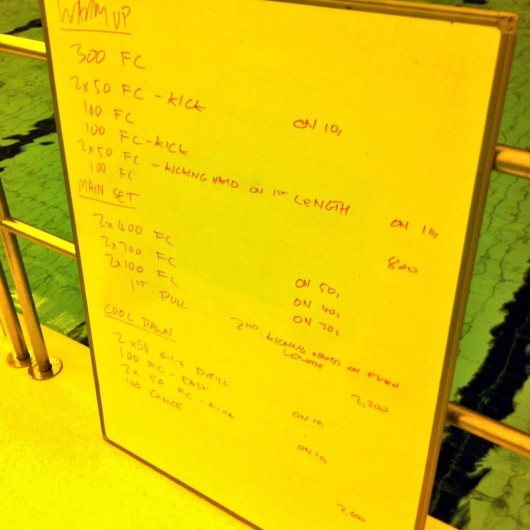 WARM UP
300 FC
2x50 FC - KICK ON 10s
100 FC
100 FC - KICK
2x50 FC - KICKING HARD ON 1ST LENGTH ON 10s
100 FC 800
MAIN SET
2x400 FC ON 50s
2x200 FC ON 40s
2x100 FC ON 30s
1ST PULL 2ND KICKING HARD ON EVEN LENGTHS
2,200
COOL DOWN
2x50 6.1.6 DRILL ON 10
100 FC - EASY
2x50 FC - KICK ON 10s
100 CHOICE
2,600